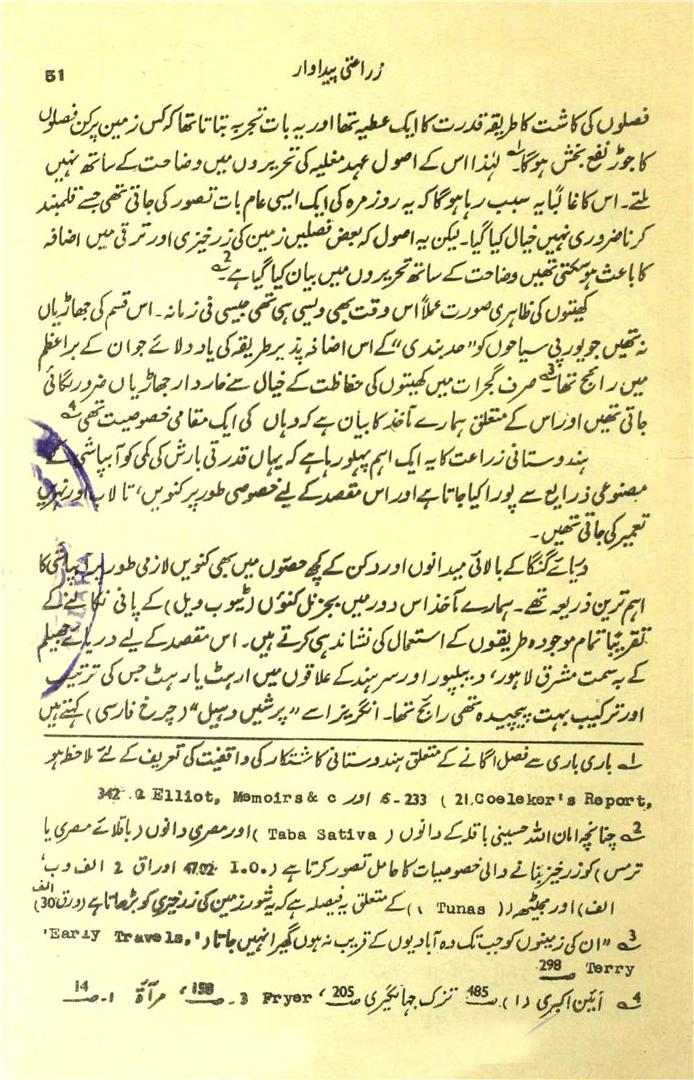 زراعتی پیداوار
51
فصلوں کی کاشت کا طریقہ قدرت کا ایک عطیہ تھا اور یہ بات تجربہ بتاتا تھا کہ کس زمین پر کن فصلوں
کا جوڑ نفع بخش ہوگا۔ لہٰذا اس کے اصول عہد مغلیہ کی تحریروں میں وضاحت کے ساتھ نہیں
ملتے۔ اس کا غالباً یہ سبب رہا ہوگا کہ یہ روز مرہ کی ایک ایسی عام بات تصور کی جاتی تھی جسے قلمبند
کرنا ضروری نہیں خیال کیا گیا۔ لیکن یہ اصول کہ بعض فصلیں زمین کی زرخیزی اور ترقی میں اضافہ
کا باعث ہو سکتی تھیں وضاحت کے ساتھ تحریروں میں بیان کیا گیا ہے۔2
کھیتوں کی ظاہری صورت عملاً اس وقت بھی ویسی ہی تھی جیسی فی زمانہ۔ اس قسم کی جھاڑیاں
نہ تھیں جو یورپی سیاحوں کو "حد بندی" کے اس اضافہ پذیر طریقہ کی یاد دلائے جو ان کے براعظم
میں رائج تھا۔3 صرف گجرات میں کھیتوں کی حفاظت کے خیال سے خاردار جھاڑیاں ضرور لگائی
جاتی تھیں اور اس کے متعلق ہمارے مآخذ کا بیان ہے کہ وہاں کی ایک مقامی خصوصیت تھی۔4
ہندوستانی زراعت کا یہ ایک اہم پہلو رہا ہے کہ یہاں قدرتی بارش کی کمی کو آبپاشی کے
مصنوعی ذرایع سے پورا کیا جاتا ہے اور اس مقصد کے لیے خصوصی طور پر کنویں، تالاب اور نہریں
تعمیر کی جاتی تھیں۔
دریائے گنگا کے بالائی میدانوں اور دکن کے کچھ حصّوں میں بھی کنویں لازمی طور پر آبپاشی کا
اہم ترین ذریعہ تھے۔ ہمارے مآخذ اس دور میں بجز نل کنوؤں (ٹیوب ویل) کے پانی نکالنے کے
تقریباً تمام موجودہ طریقوں کے استعمال کی نشاندہی کرتے ہیں۔ اس مقصد کے لیے دریائے جھیلم
کے بہ سمت مشرق لاہور، دیپلپور اور سرہند کے علاقوں میں ارہٹ یا رہٹ جس کی ترتیب
اور ترکیب بہت پیچیدہ تھی رائج تھا۔ انگریز اسے "پرشین وہیل" (چرخ فارسی) کہتے ہیں
1 باری باری سے فصل اگانے کے متعلق ہندوستانی کاشتکار کی واقفیت کی تعریف کے لئے ملاحظہ ہو
Voeleker's Report, 21) 233-6 اور Elliot, Memoirs & c 2. 342
2 چنانچہ امان اللہ حسینی باقلہ کے دانوں (Taba Sativa) اور مصری دانوں (باقلائے مصری یا
ترمس) کو زرخیز بنانے والی خصوصیات کا حامل تصور کرتا ہے (I.O. 4702. اوراق 2 الف و ب،
الف) اور مجیٹھ ((Tunas،) کے متعلق یہ فیصلہ ہے کہ یہ شور زمین کی زرخیزی کو بڑھاتا ہے (ورق 30 الف)
3 "ان کی زمینوں کو جب تک وہ آبادیوں کے قریب نہ ہوں گھیرا نہیں جاتا ('Early Travels,'
Terry 298
4 آئین اکبری (1) 485 تزک جہانگیری 205، Fryer 3۔ 158، مرآۃ 1۔ 14